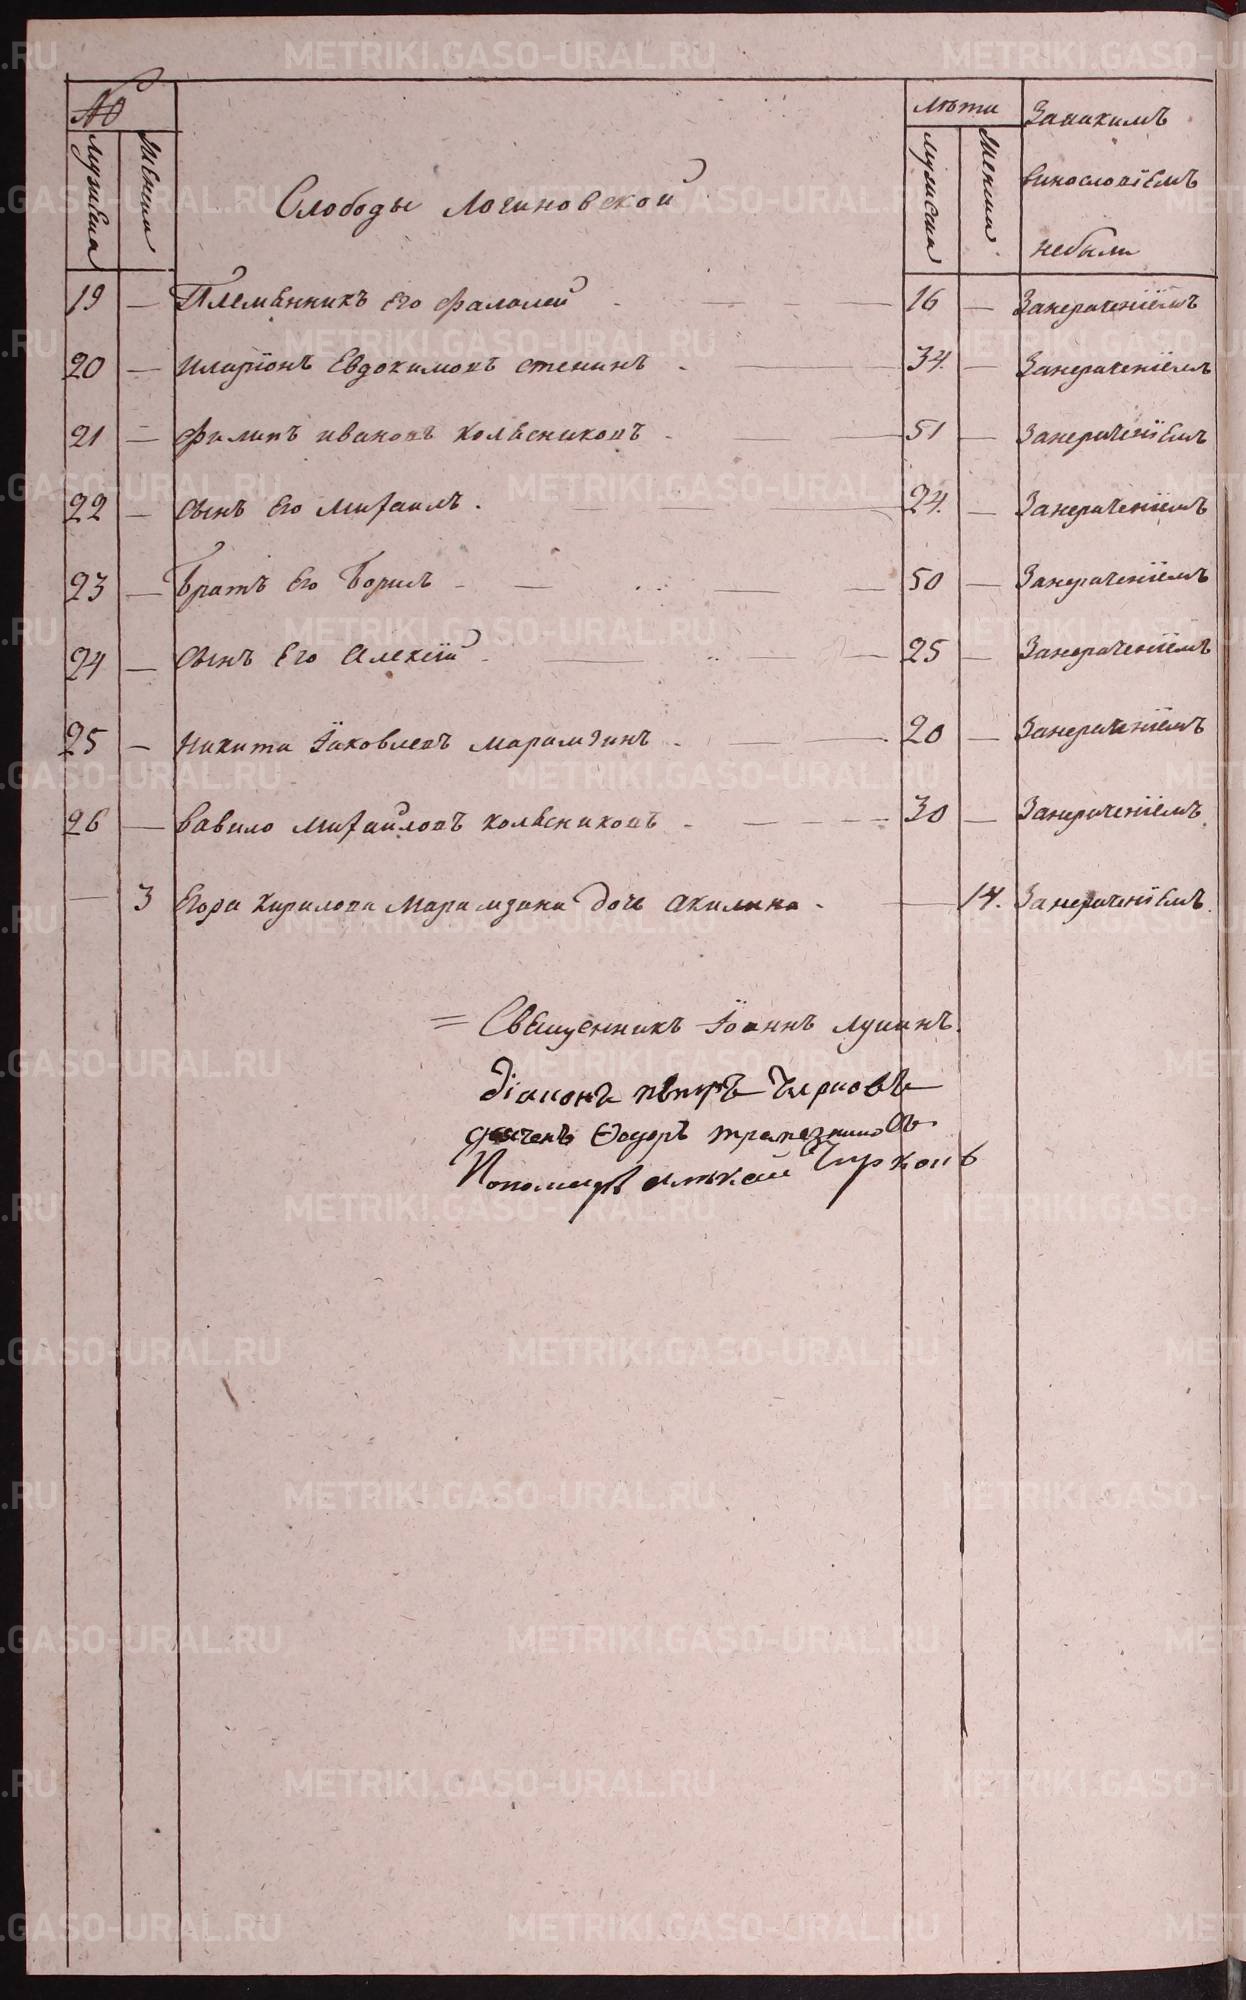 №
мужеска
женска
Слободы Логиновской
лѣта
мужеска
женска
Закакимъ
винословіемъ
небыли
19 — Племянникъ Его Фалалей — 16 — Занераченіемъ
20 — Иларіонъ Евдокимовъ Стенинъ — 34. — Занераченіемъ
21 — Филипъ Ивановъ Колѣсниковъ — 51 — Занераченіемъ
22 — Сынъ Его Михаилъ. — 24. — Занераченіемъ
23 — Братъ Его Борисъ — 50 — Занераченіемъ
24 — Сынъ Его Алексѣй — 25 — Занераченіемъ
25 — Никита Іаковлевъ Марамзинъ — 20 — Занераченіемъ
26 — Вавило Михайловъ Колѣсниковъ — 30 — Занераченіемъ.
— 3 Егора Кирилова Марамзина дочь Акилина. — 14. Занераченіемъ.
= Священникъ Іоаннъ Лукинъ.
Діаконъ Петръ Чирковъ
дьячекъ Ѳедоръ Трапезниковъ
Пономарь Алексей Чирковъ
METRIKI.GASO-URAL.RU